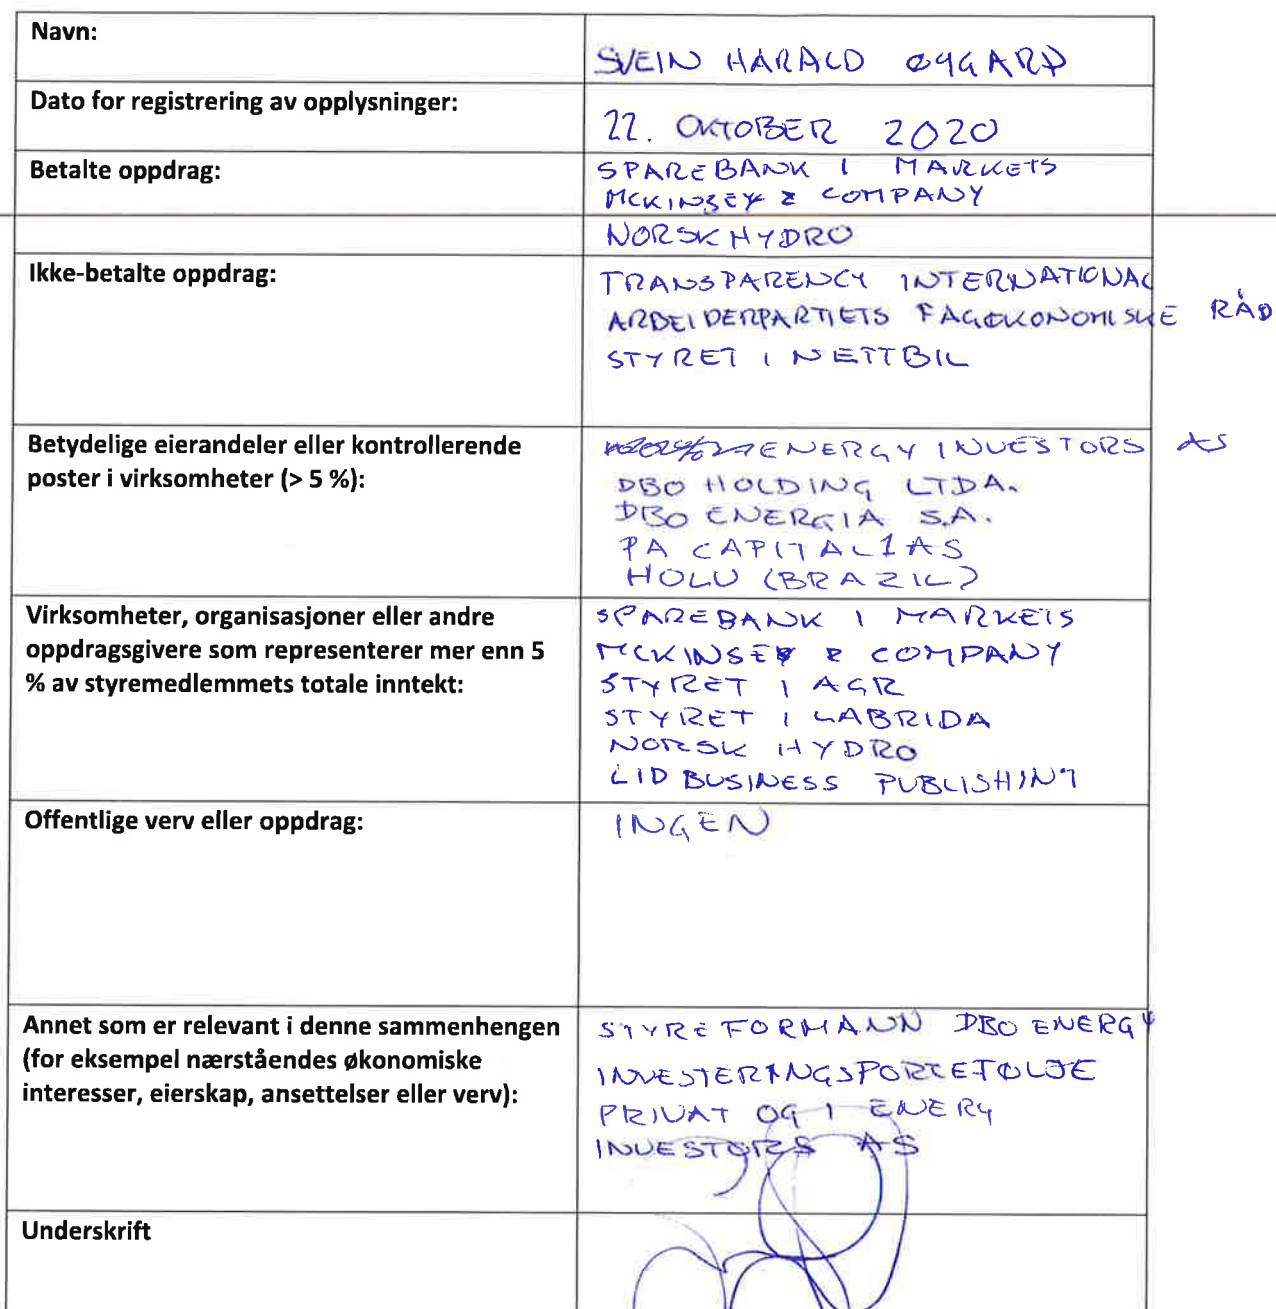 Navn:
SVEIN HARALD ØYGARD
Dato for registrering av opplysninger:
22. OKTOBER 2020
Betalte oppdrag:
SPAREBANK 1 MARKETS
MCKINSEY & COMPANY
NORSK HYDRO
Ikke-betalte oppdrag:
TRANSPARENCY INTERNATIONAL
ARBEIDERPARTIETS FAGØKONOMISKE RÅD
STYRET I NETTBIL
Betydelige eierandeler eller kontrollerende
poster i virksomheter (> 5 %):
ENERGY INVESTORS AS
DBO HOLDING LTDA.
DBO ENERGIA S.A.
PA CAPITAL 1 AS
HOLU (BRAZIL)
Virksomheter, organisasjoner eller andre
oppdragsgivere som representerer mer enn 5
% av styremedlemmets totale inntekt:
SPAREBANK 1 MARKETS
MCKINSEY & COMPANY
STYRET I AGR
STYRET I LABRIDA
NORSK HYDRO
LID BUSINESS PUBLISHING
Offentlige verv eller oppdrag:
INGEN
Annet som er relevant i denne sammenhengen
(for eksempel nærståendes økonomiske
interesser, eierskap, ansettelser eller verv):
STYREFORMANN DBO ENERGY
INVESTERINGSPORTEFØLJE
PRIVAT OG I ENERY
INVESTORS AS
Underskrift